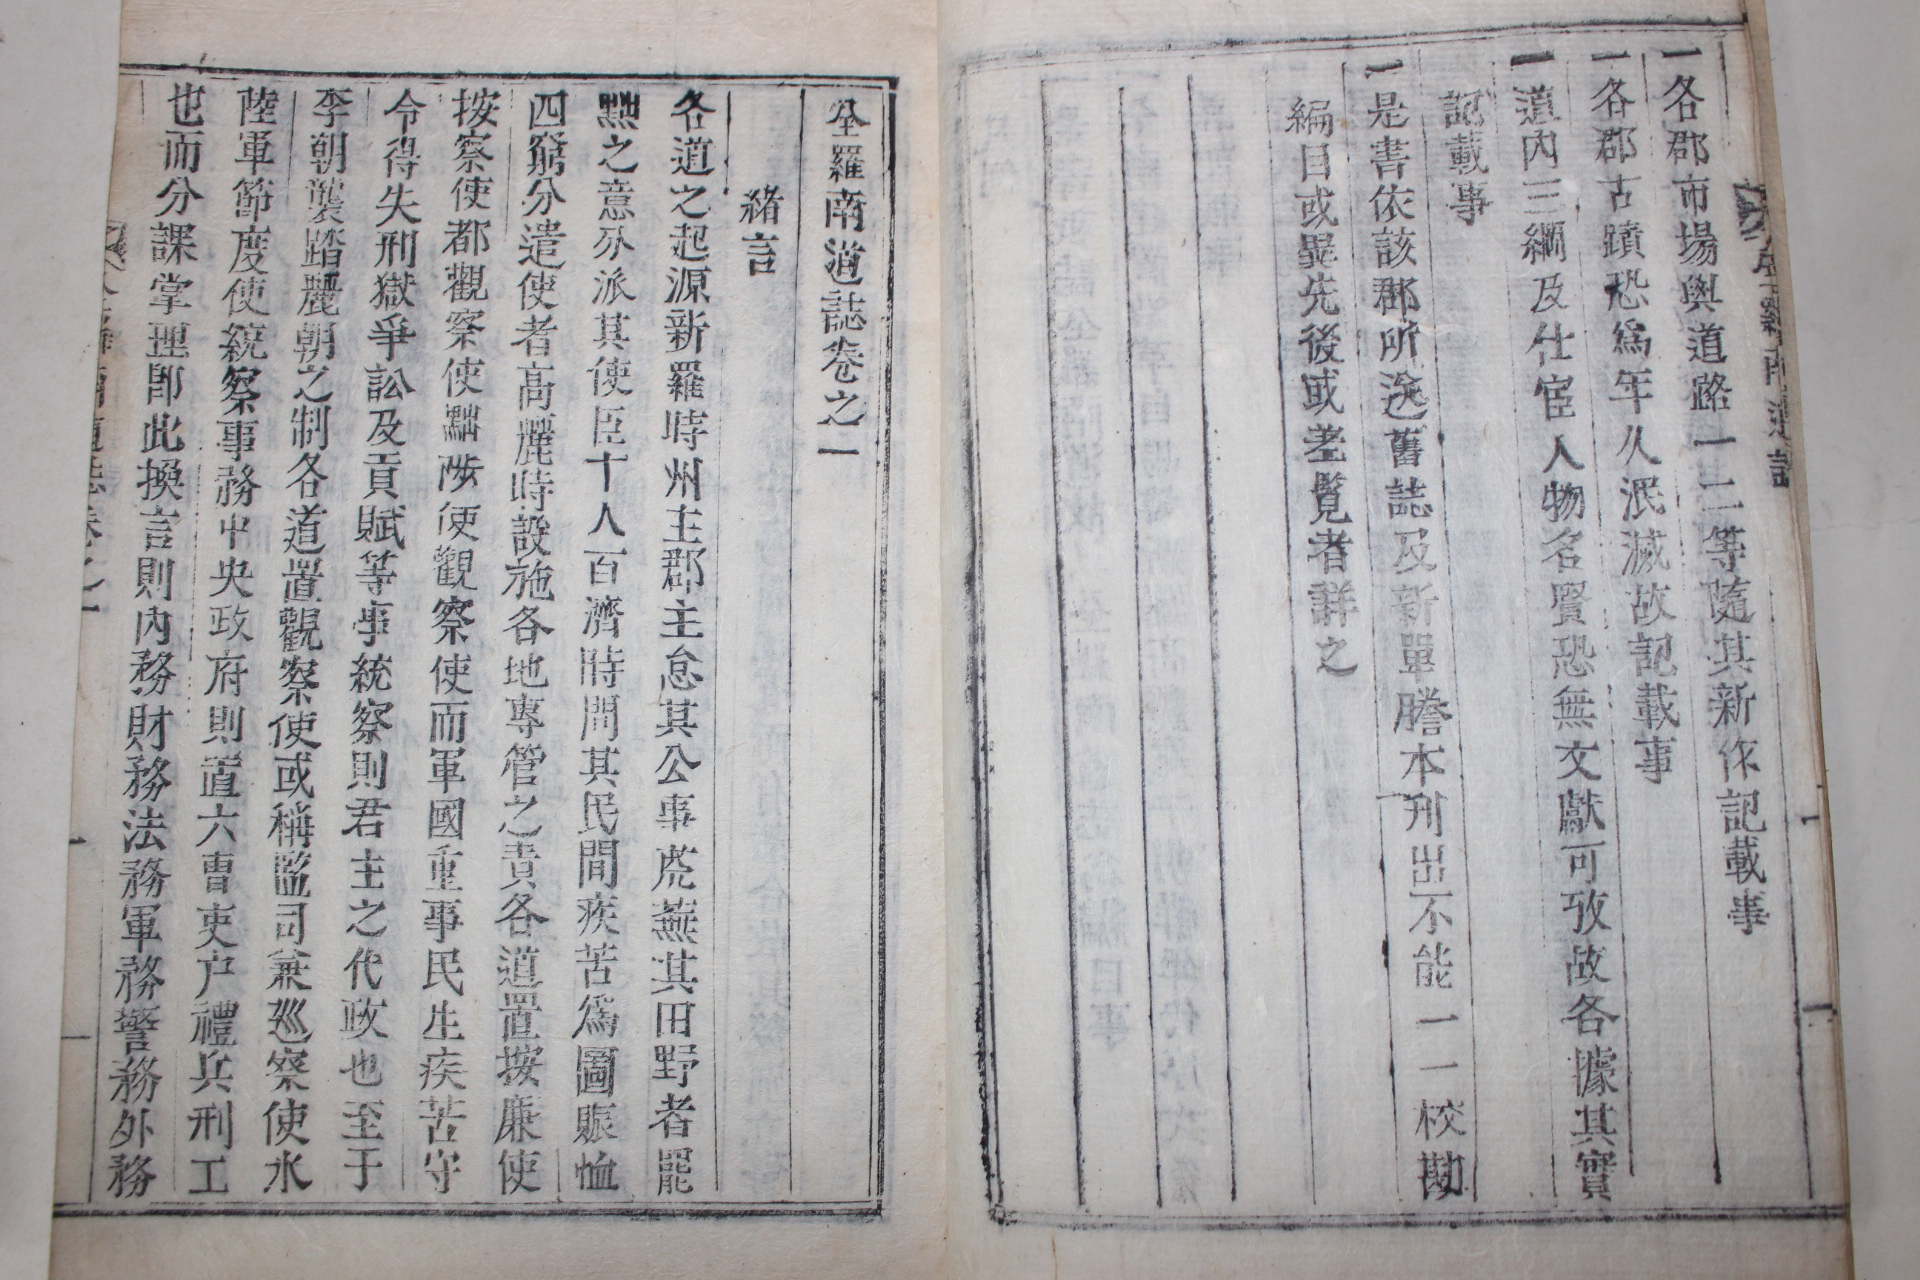 一各郡市場與道路一二等隨其新作記載事
一各郡古蹟恐爲年久泯滅故記載事
一道內三綱及仕宦人物名賢恐無文獻可攷故各據其實
記載事
一是書依該郡所送舊誌及新單謄本刊出不能一一校勘
編目或異先後或差覽者詳之
全羅南道誌卷之一
緖言
各道之起源新羅時州主郡主怠其公事虎蕪其田野者罷
黜之意分派其使臣十人百濟時問其民間疾苦爲圖賑恤
四窮分遣使者高麗時設施各地專管之責各道置按廉使
按察使都觀察使黜陟使觀察使而軍國重事民生疾苦守
令得失刑獄爭訟及貢賦等事統察則君主之代政也至于
李朝襲踏麗朝之制各道置觀察使或稱監司兼巡察使水
陸軍節度使統察事務中央政府則置六曹吏户禮兵刑工
也而分課掌理卽此換言則內務財務法務軍務警務外務